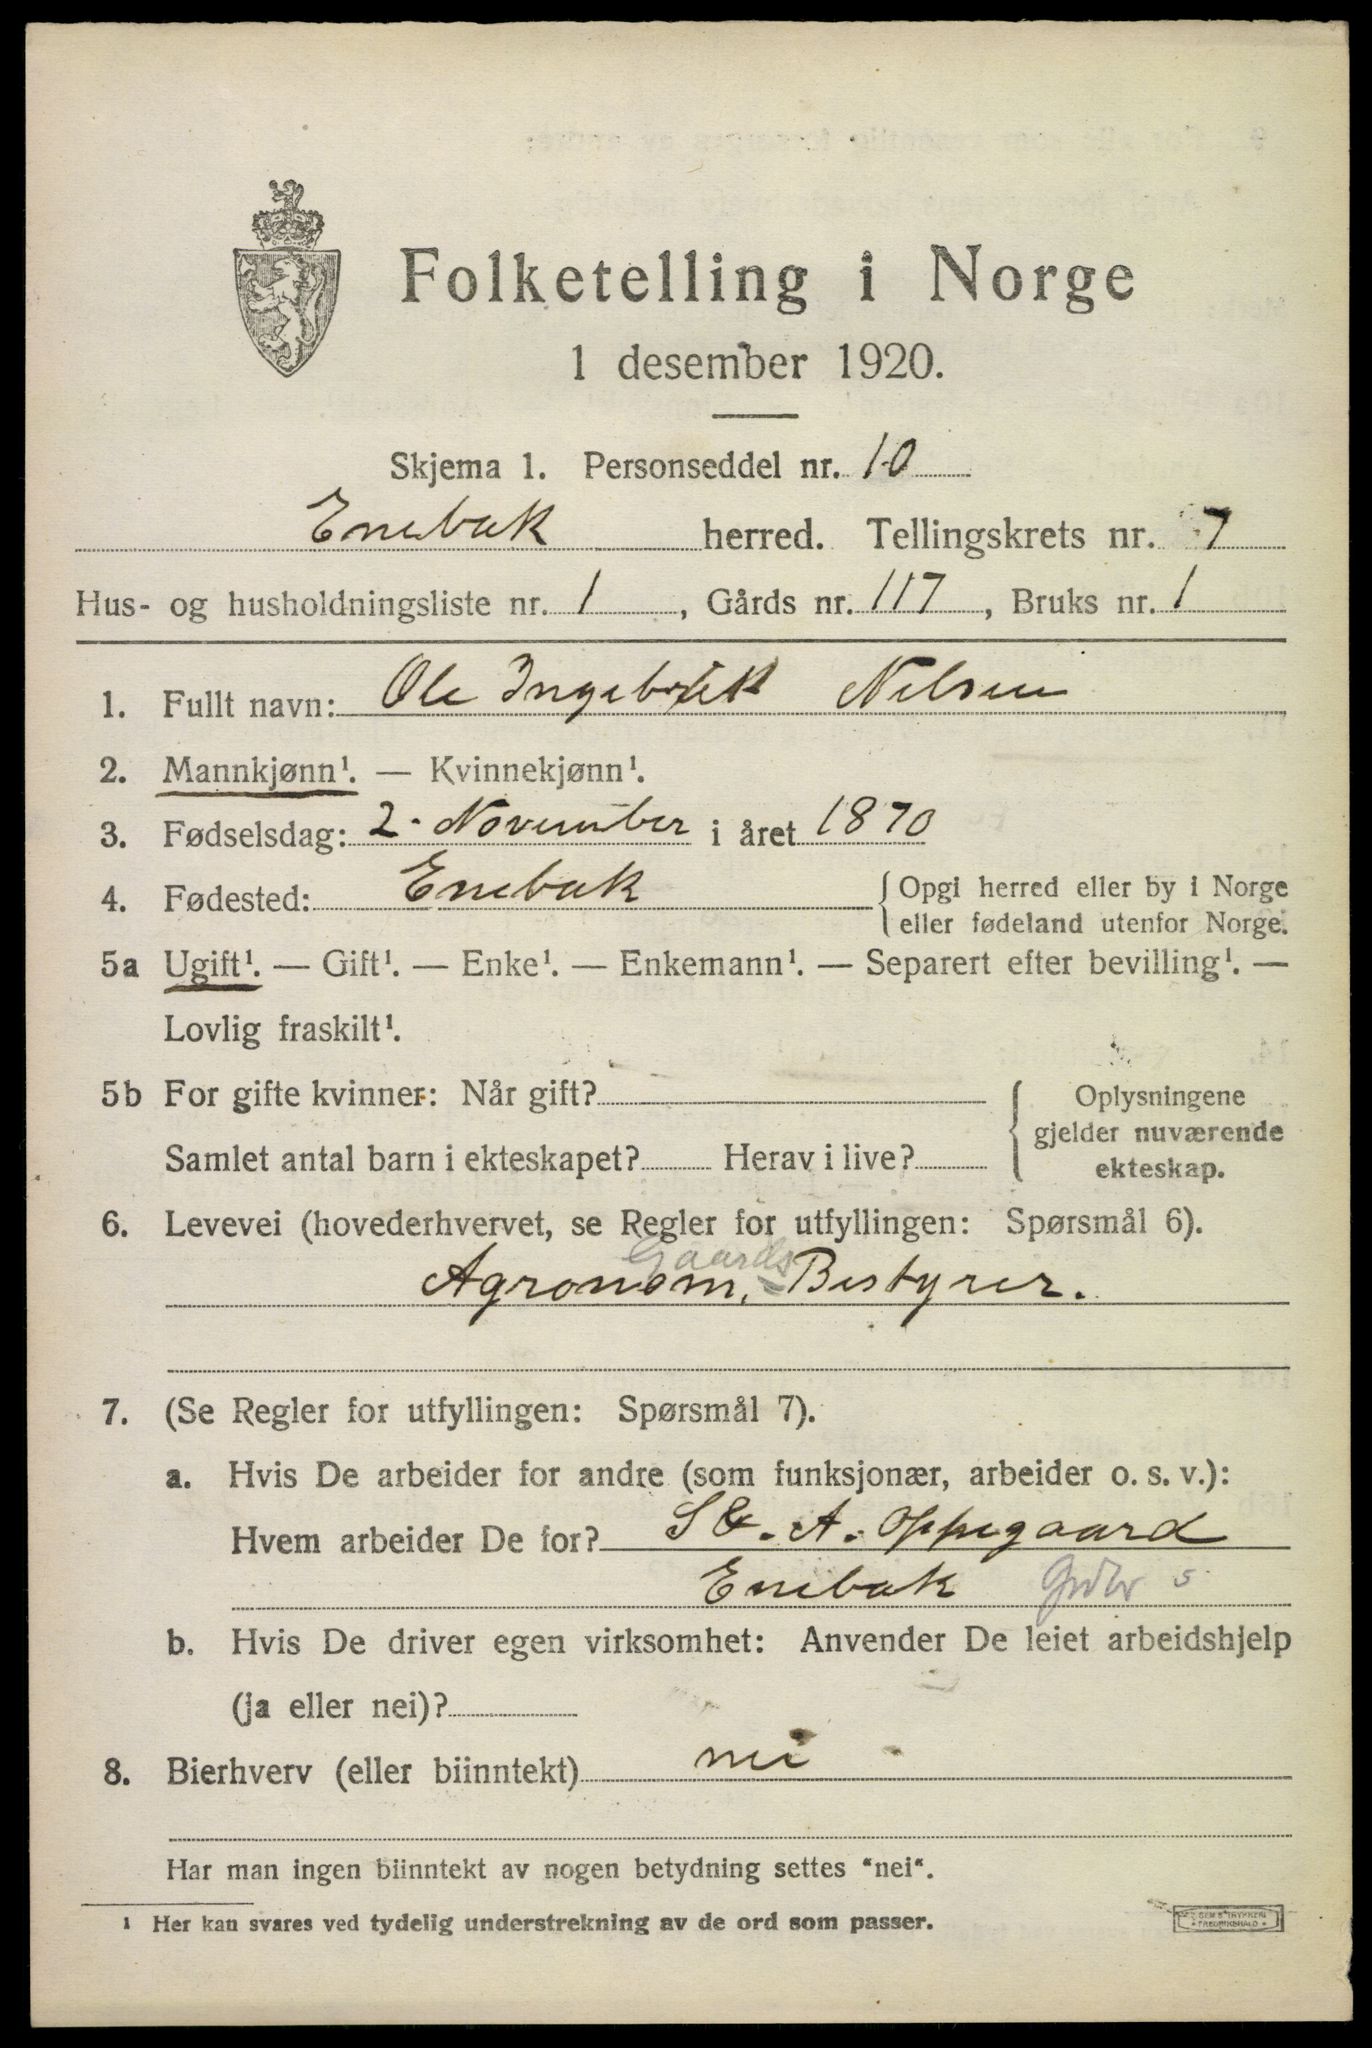 Folketelling i Norge
1 desember 1920.
Skjema 1. Personseddel nr. 10
Enebak herred. Tellingskrets nr. 7
Hus- og husholdningsliste nr. 1, Gårds nr. 117, Bruks nr. 1
1. Fullt navn: Ole Ingebrikt Nilsen
2. Mannkjønn¹. — Kvinnekjønn¹.
3. Fødselsdag: 2. November i året 1870
4. Fødested: Enebak { Opgi herred eller by i Norge
eller fødeland utenfor Norge.
5a Ugift¹. — Gift¹. — Enke¹. — Enkemann¹. — Separert efter bevilling¹. —
Lovlig fraskilt¹.
5b For gifte kvinner: Når gift? { Oplysningene
gjelder nuværende
Samlet antal barn i ekteskapet? Herav i live? ekteskap.
6. Levevei (hovederhvervet, se Regler for utfyllingen: Spørsmål 6).
Gaards
Agronom, Bestyrer.
7. (Se Regler for utfyllingen: Spørsmål 7).
a. Hvis De arbeider for andre (som funksjonær, arbeider o. s. v.):
Hvem arbeider De for? A. Oppegaard
Enebak
b. Hvis De driver egen virksomhet: Anvender De leiet arbeidshjelp
(ja eller nei)?
8. Bierhverv (eller biinntekt) nei
Har man ingen biinntekt av nogen betydning settes "nei".
¹ Her kan svares ved tydelig understrekning av de ord som passer.
SEM & TRYKKERI
FREDRIKSHALD